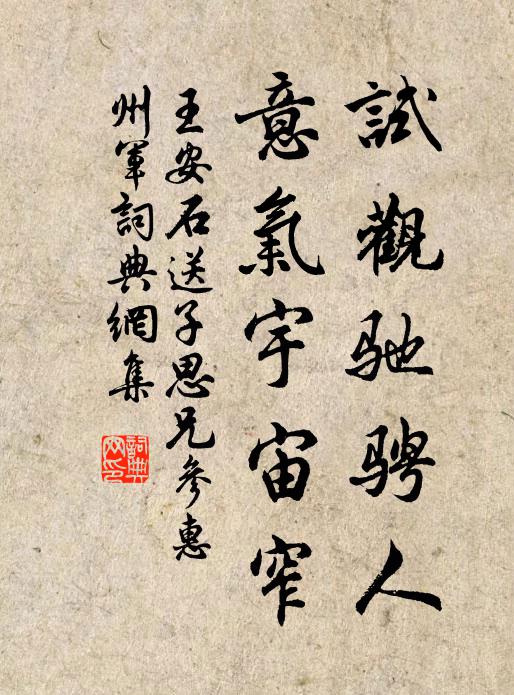 試觀馳騁人
意氣宇宙窄
王安石送子思兄參惠
州軍詞典網集
詞典
网印